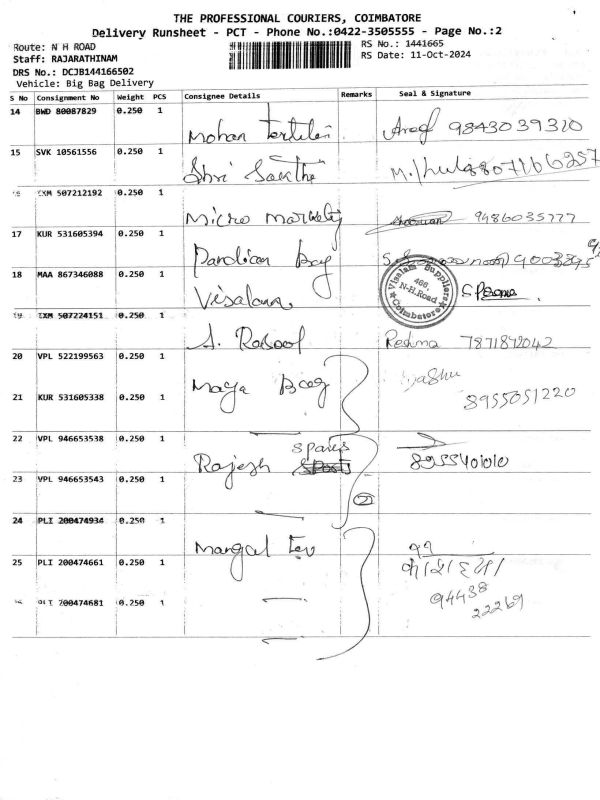 THE PROFESSIONAL COURIERS, COIMBATORE
Delivery Runsheet - PCT - Phone No.:0422-3505555 - Page No.:2
Route: N H ROAD
RS No.: 1441665
Staff: RAJARATHINAM
RS Date: 11-Oct-2024
DRS No.: DCJB144166502
Vehicle: Big Bag Delivery
S No Consignment No Weight PCS Consignee Details Remarks Seal & Signature
14 BWD 80087829 0.250 1
Mohan 9843039310
15 SVK 10561556 0.250 1
Shri Sakthi
507212192 0.250 1
Micro 9486035777
17 KUR 531605394 0.250 1
Pandian Bag
18 MAA 867346088 0.250 1
Visalam
Visalam Suppliers
466,
N-H.Road
Coimbatore
507224151 0.250 1
A. Redma 7871872042
20 VPL 522199563 0.250 1
Maya Bag
21 KUR 531605338 0.250 1
8955051220
22 VPL 946653538 0.250 1
Spares
Rajesh
23 VPL 946653543 0.250 1
2
24 PLI 200474934 0.250 1
Mangal
25 PLI 200474661 0.250 1
94438
22269
200474681 0.250 1